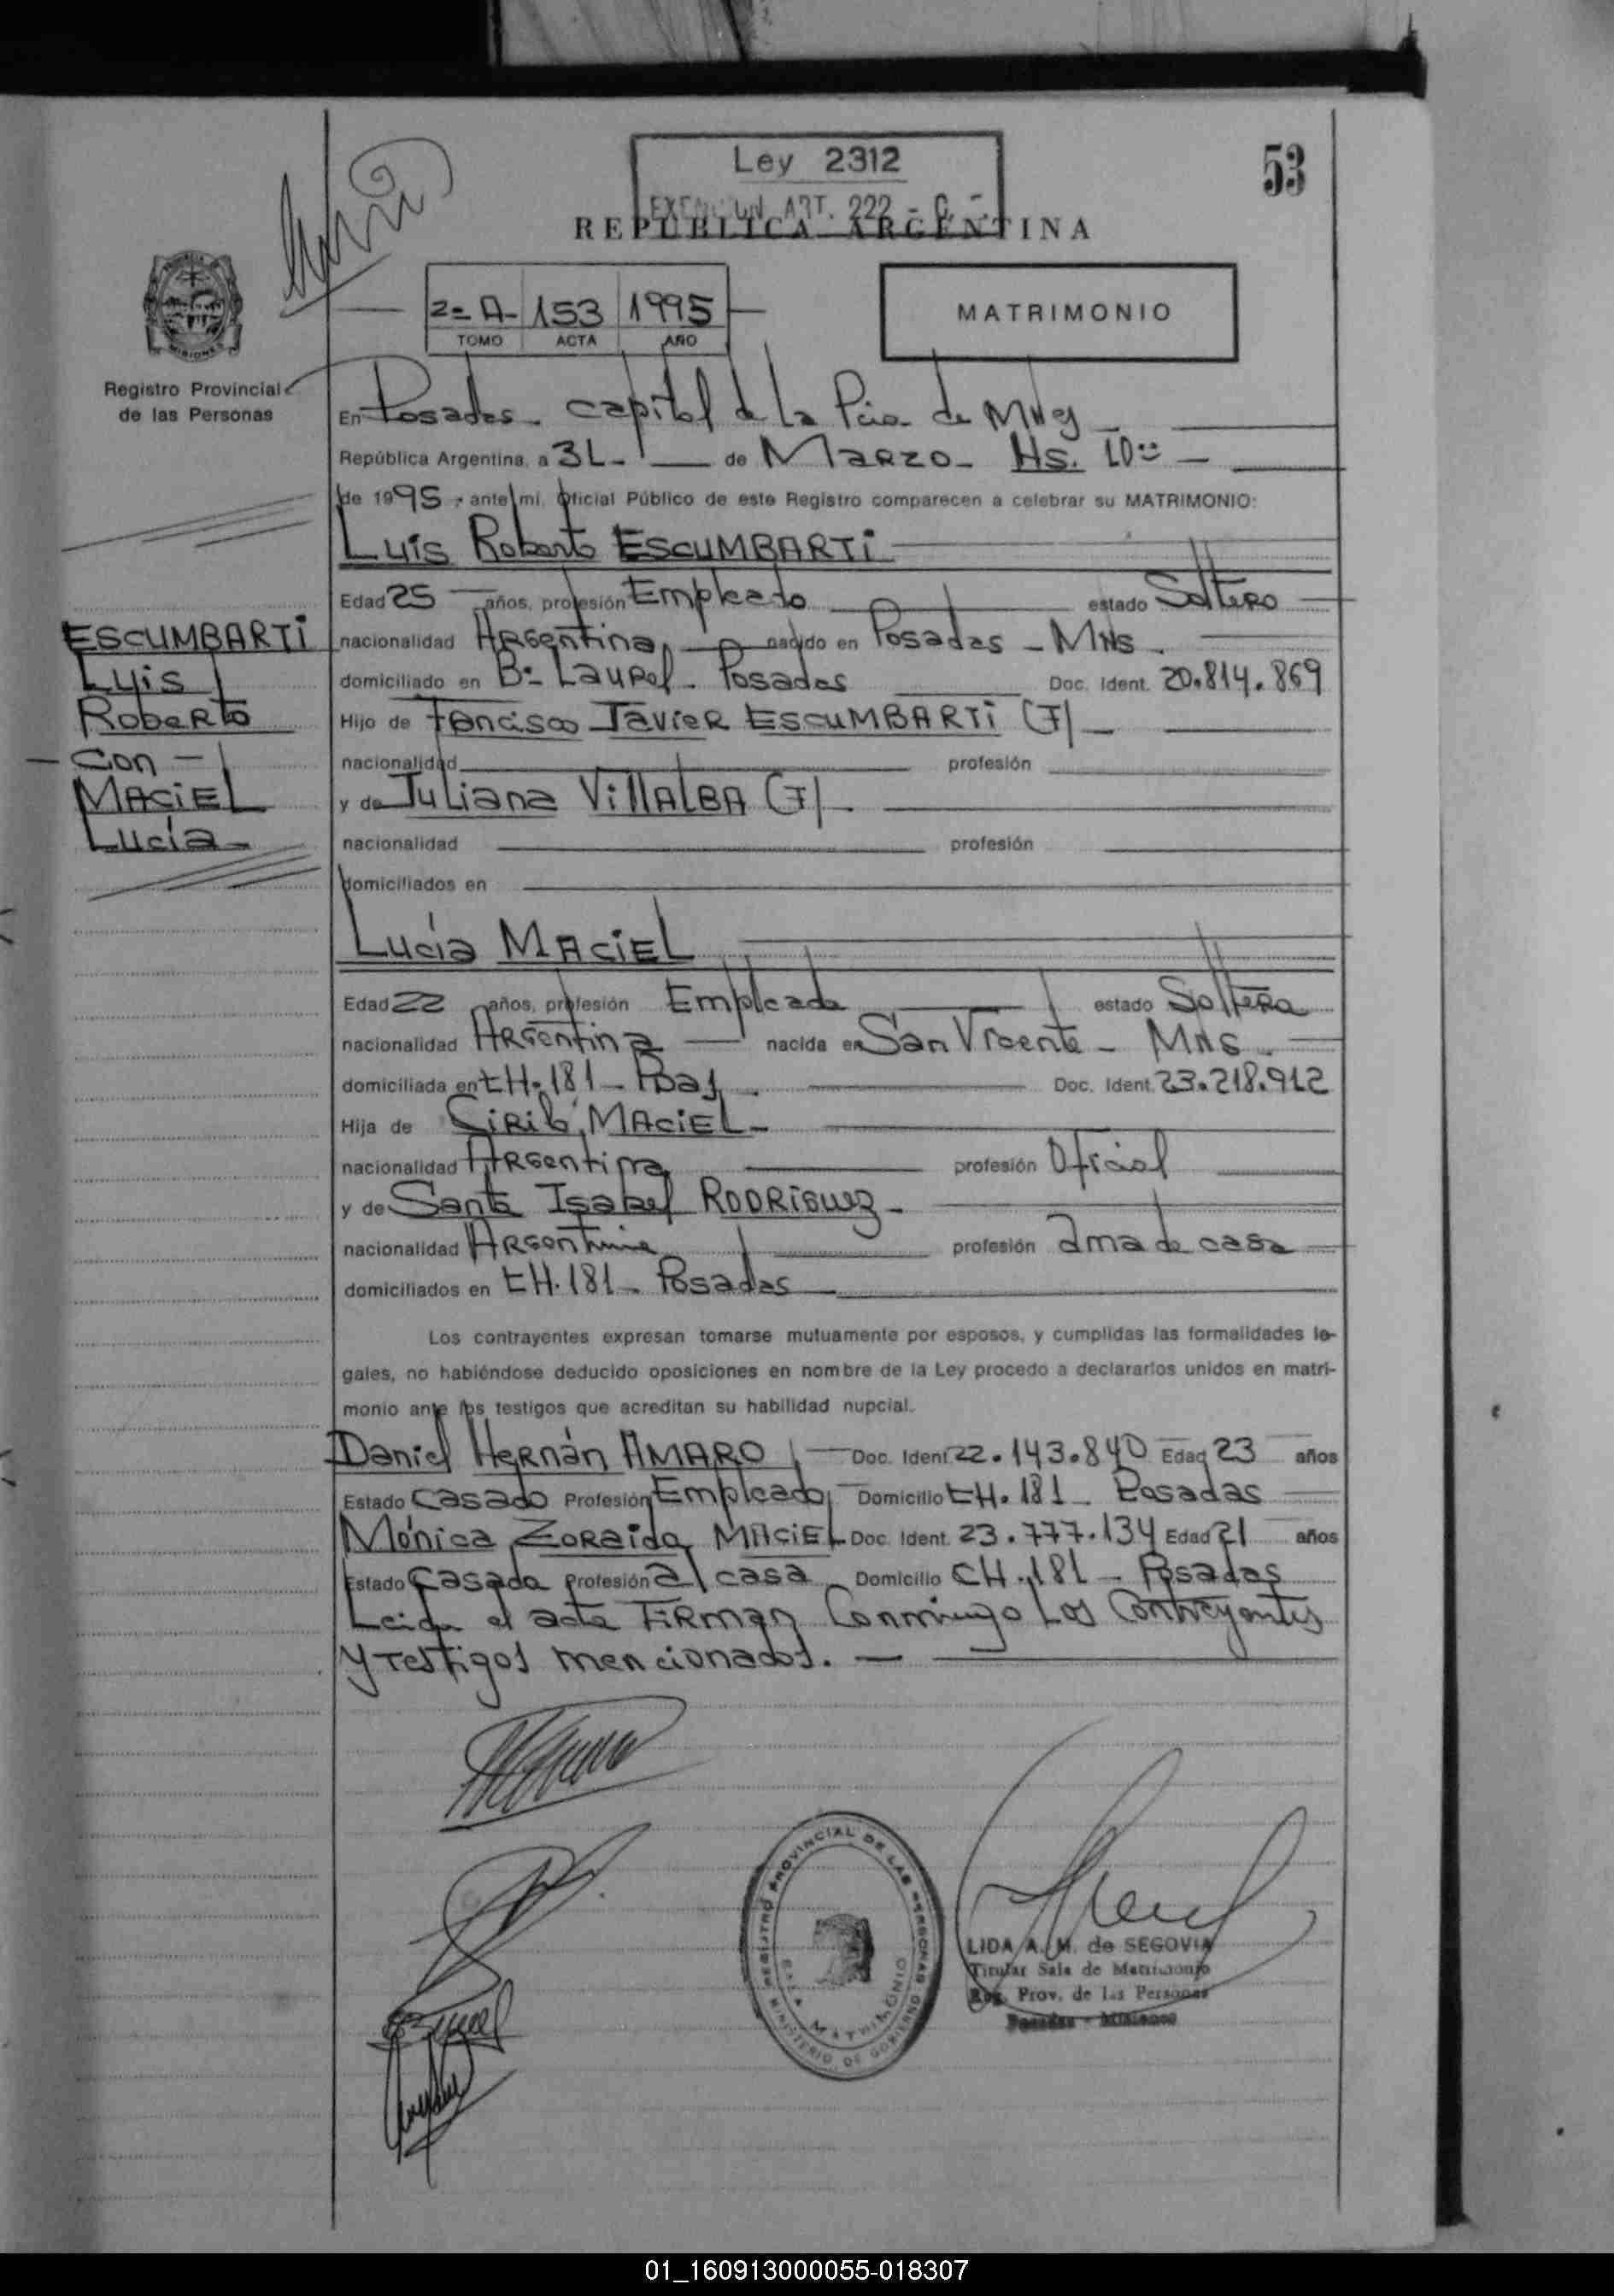 Ley 2312
EXENCION ART. 222 - C. -
53
REPUBLICA ARGENTINA
2= A- 153 1995
TOMO ACTA AÑO
MATRIMONIO
MISIONES
Registro Provincial
de las Personas
En Posadas - capital de la Pcia de Mnes
República Argentina, a 31 - de Marzo - Hs. 10==
de 1995 - ante mí, Oficial Público de este Registro comparecen a celebrar su MATRIMONIO:
Luis Roberto ESCUMBARTi
Edad 25 años, profesión Empleado estado Soltero
nacionalidad Argentina nacido en Posadas - MNS.
domiciliado en B= Laurel - Posadas Doc. Ident. 20.814.869
Hijo de Fancisco Javier ESCUMBARTi (F)
nacionalidad profesión
y de Juliana VillALBA (F)
nacionalidad profesión
domiciliados en
ESCUMBARTi
Luis
Roberto
- Con -
MACiEL
Lucía
Lucía MACiEL
Edad 22 años, profesión Empleada estado Soltera
nacionalidad Argentina nacida en San Vicente - MNS
domiciliada en CH. 181 - Pdas Doc. Ident. 23.218.912
Hija de Cirilo MACiEL -
nacionalidad Argentina profesión Oficial
y de Santa Isabel RODRiguez -
nacionalidad Argentina profesión ama de casa
domiciliados en CH. 181 - Posadas
Los contrayentes expresan tomarse mutuamente por esposos, y cumplidas las formalidades le-
gales, no habiéndose deducido oposiciones en nombre de la Ley procedo a declararlos unidos en matri-
monio ante los testigos que acreditan su habilidad nupcial.
Daniel Hernán AMARO Doc. Ident. 22.143.840 Edad 23 años
Estado Casado Profesión Empleado Domicilio CH. 181 - Posadas
Mónica Zoraida MACiEL Doc. Ident. 23.777.134 Edad 21 años
Estado Casada Profesión a/ casa Domicilio CH. 181 - Posadas
Leida el acta Firman Conmigo Los Contrayentes
y Testigos mencionados. -
REGISTRO PROVINCIAL DE LAS PERSONAS
SALA MATRIMONIO
MINISTERIO DE GOBIERNO
LIDA A. M. de SEGOVIA
Titular Sala de Matrimonio
Reg. Prov. de las Personas
Posadas - Misiones
01_160913000055-018307